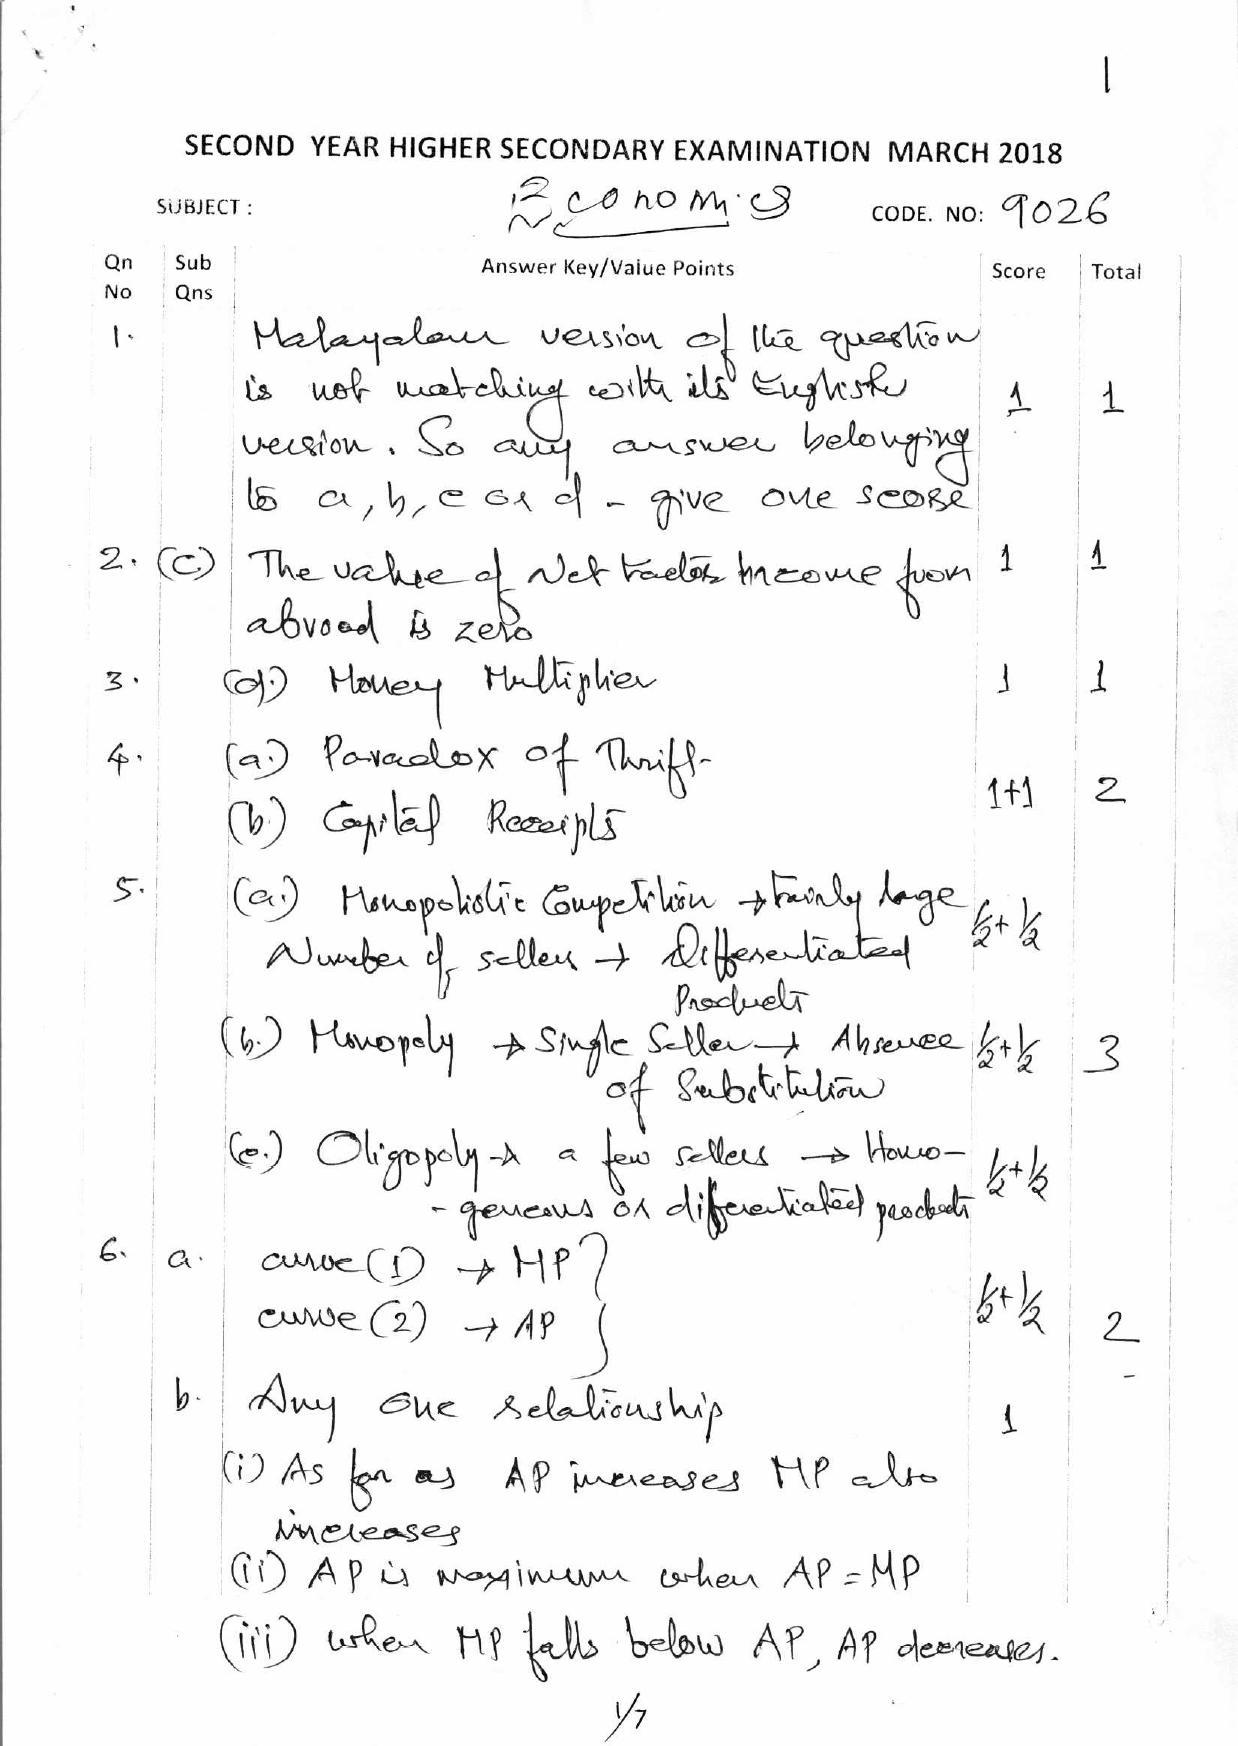 1
SECOND YEAR HIGHER SECONDARY EXAMINATION MARCH 2018
SUBJECT : Economics CODE. NO: 9026
Qn No Sub Qns Answer Key/Value Points Score Total
1. Malayalam version of the question
is not matching with its English 1 1
version. So any answer belonging
to a, b, c or d - give one score
2. (c) The value of Net factor income from 1 1
abroad is zero
3. (d.) Money Multiplier 1 1
4. (a.) Paradox of Thrift
1+1 2
(b.) Capital Receipts
5. (a.) Monopolistic Competition → Fairly large ½+½
Number of sellers → Differentiated
Products
(b.) Monopoly → Single Seller → Absence ½+½ 3
of Substitution
(c.) Oligopoly → a few sellers → Homo- ½+½
- geneous or differentiated products
6. a. curve (1) → MP }
½+½
curve (2) → AP 2
b. Any one relationship 1
(i) As far as AP increases MP also
increases
(ii) AP is maximum when AP = MP
(iii) when MP falls below AP, AP decreases.
1/7